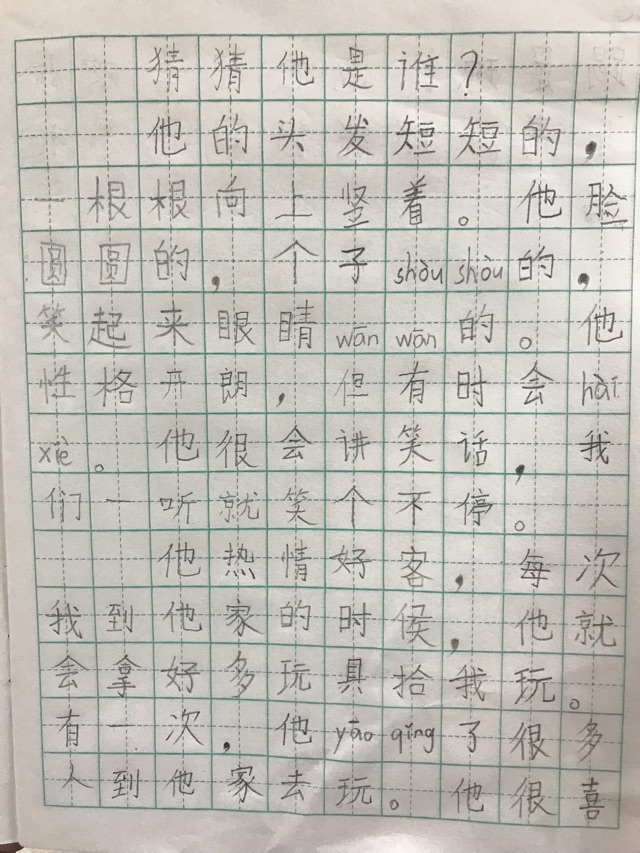 猜猜他是谁？
他的头发短短的，
一根根向上竖着。他脸
圆圆的，个子shòu shòu的，
笑起来眼睛wān wān的。他
性格开朗，但有时会hài
xiè。他很会讲笑话，我
们一听就笑个不停。
他热情好客，每次
我到他家的时候，他就
会拿好多玩具拾我玩。
有一次，他yāo qǐng了很多
人到他家去玩。他很喜